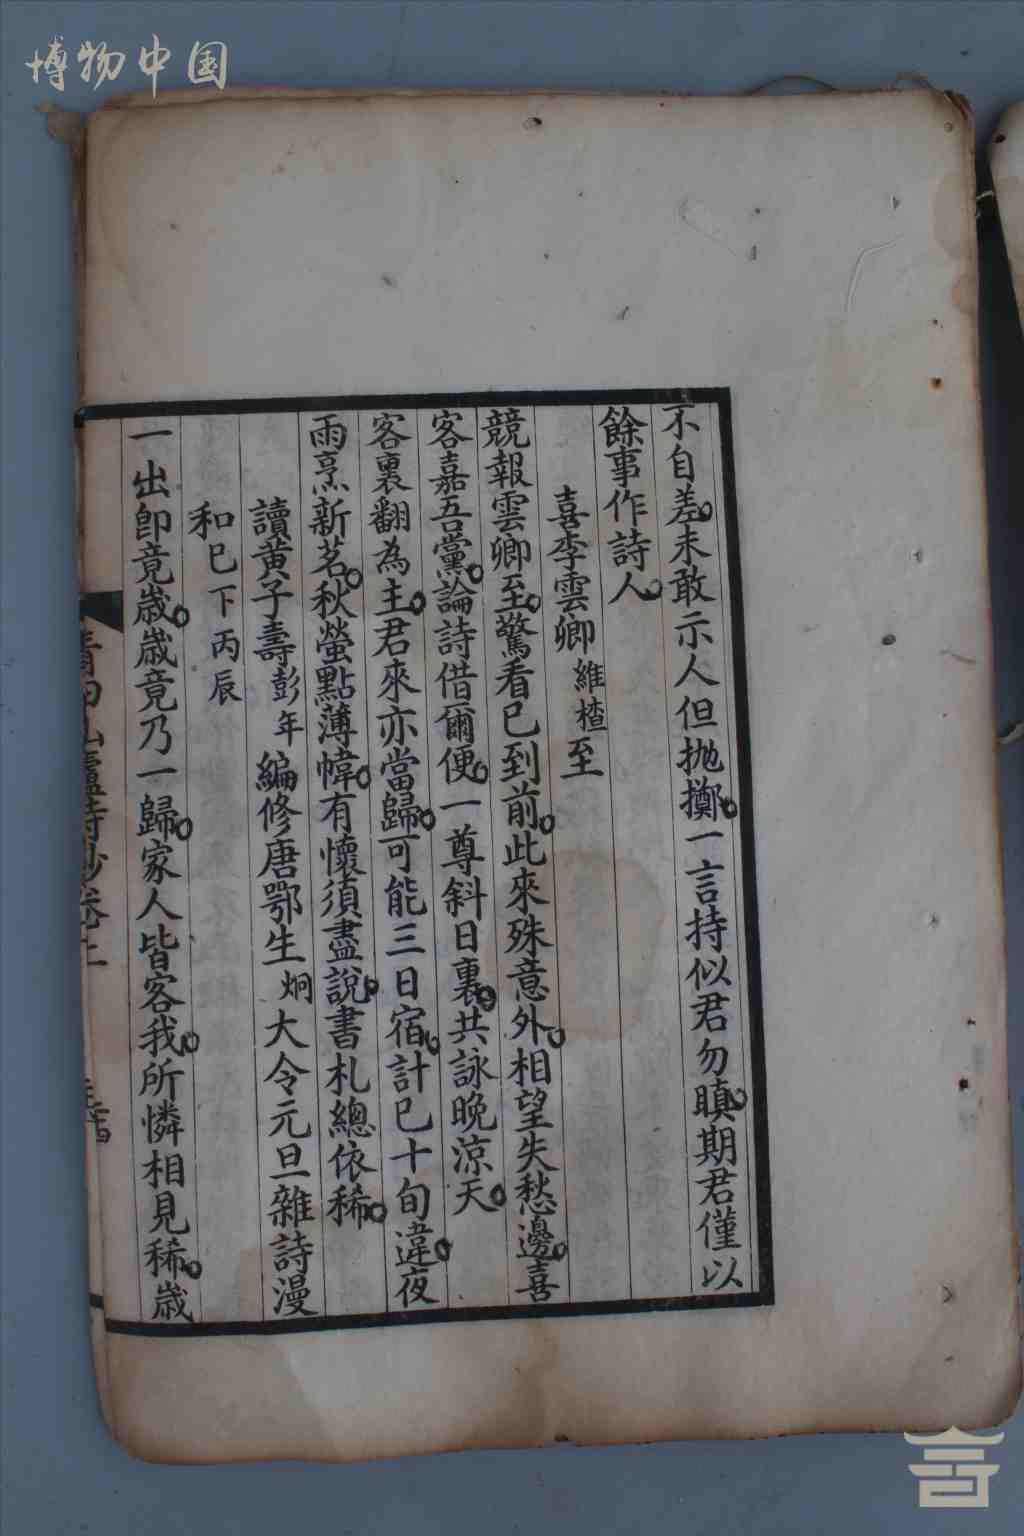 博物中国
不自差未敢示人但抛擲一言持似君勿瞋期君僅以
餘事作詩人
喜李雲卿維楂至
競報雲卿至驚看已到前此來殊意外相望失愁邊喜
客嘉吾黨論詩借爾便一尊斜日裏共詠晚涼天
客裏翻為主君來亦當歸可能三日宿計已十旬違夜
雨烹新茗秋螢點薄幃有懷須盡說書札總依稀
讀黃子壽彭年編修唐鄂生炯大令元旦雜詩漫
和已下丙辰
一出卽竟歲歲竟乃一歸家人皆客我所憐相見稀歲
山廬詩鈔卷上